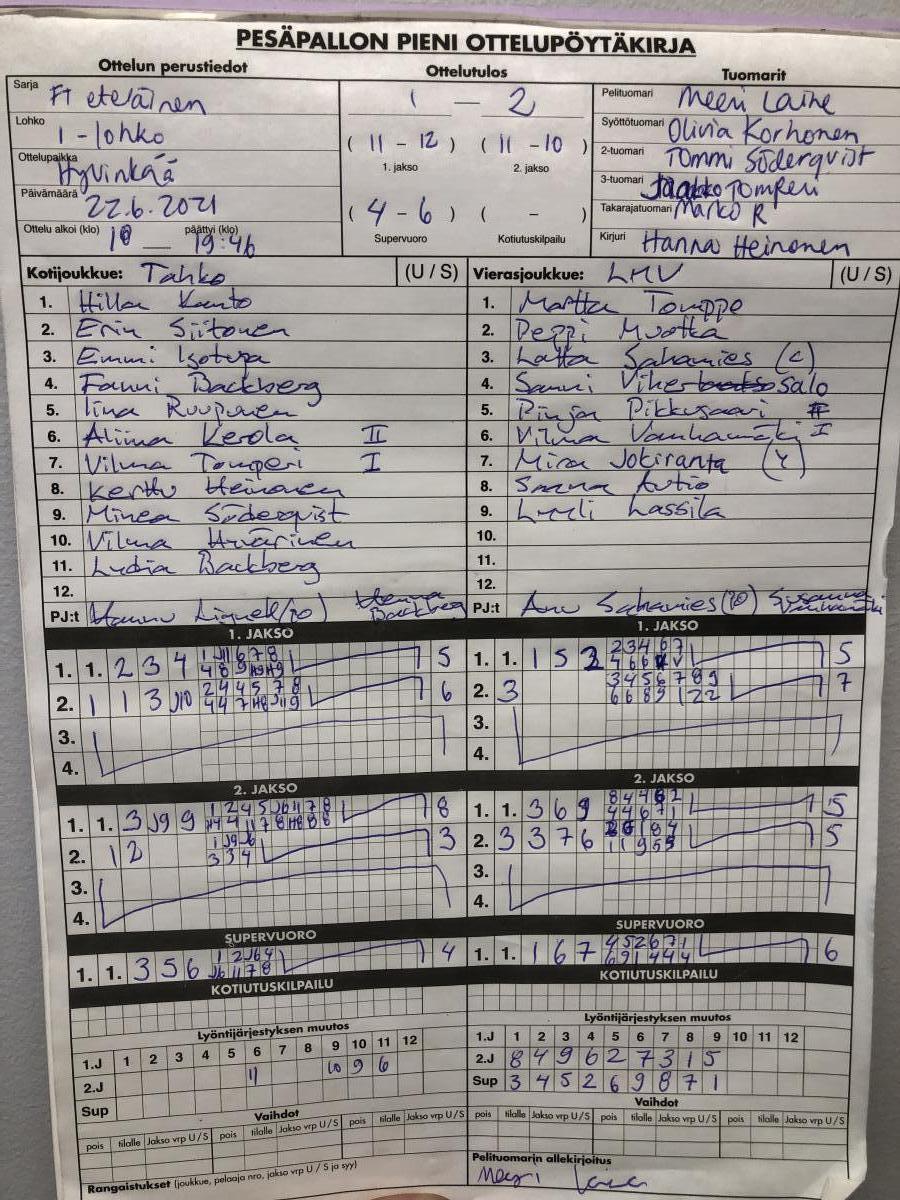 PESÄPALLON PIENI OTTELUPÖYTÄKIRJA
Ottelun perustiedot
Ottelutulos
Tuomarit
Sarja
Ft eteläinen
Lohko
1-lohko
Ottelupaikka
Hyvinkää
Päivämäärä
22.6.2021
Ottelu alkoi (klo) 18 päättyi (klo) 19:46
1 — 2
( 11 - 12 ) ( 11 - 10 )
1. jakso 2. jakso
( 4 - 6 ) ( - )
Supervuoro Kotiutuskilpailu
Pelituomari Meeri Laine
Syöttötuomari Olivia Korhonen
2-tuomari Tommi Söderqvist
3-tuomari Jaakko Tomperi
Takarajatuomari Marko R
Kirjuri Hanna Heinonen
Kotijoukkue: Tahko (U / S)
1. Hilla Kanto
2. Erin Siitonen
3. Emmi Isotupa
4. Fanni Backberg
5. Iina Ruuponen
6. Aliina Kerola II
7. Vilma Tomperi I
8. Kerttu Heinonen
9. Minea Söderqvist
10. Vilma Hyvärinen
11. Lydia Backberg
12.
PJ:t Hannu Henna Backberg
Vierasjoukkue: LMV (U / S)
1. Martta Tomppo
2. Peppi Mustka
3. Lotta Sahamies (c)
4. Sanni Vihersalo
5. Pinja Pikkusaari
6. Vilma Vanhamäki I
7. Mira Jokiranta
8. Sanna Autio
9. Lyyli Lassila
10.
11.
12.
PJ:t Anu Sahamies Susanna Vanhamäki
1. JAKSO
1. 1. 2 3 4 5
2. 1 1 3 J10 6
3.
4.
1. JAKSO
1. 1. 1 5 3 5
2. 3 7
3.
4.
2. JAKSO
1. 1. 3 J9 9 8
2. 1 2 3
3.
4.
2. JAKSO
1. 1. 3 6 9 5
2. 3 3 7 6 5
3.
4.
SUPERVUORO
1. 1. 3 5 6 4
SUPERVUORO
1. 1. 1 6 7 6
KOTIUTUSKILPAILU
KOTIUTUSKILPAILU
Lyöntijärjestyksen muutos
1.J 1 2 3 4 5 6 7 8 9 10 11 12
2.J 11 10 9 6
Sup
Lyöntijärjestyksen muutos
1.J 1 2 3 4 5 6 7 8 9 10 11 12
2.J 8 4 9 6 2 7 3 1 5
Sup 3 4 5 2 6 9 8 7 1
Vaihdot
pois tilalle Jakso vrp U / S pois tilalle Jakso vrp U / S pois tilalle Jakso vrp U / S
Vaihdot
pois tilalle Jakso vrp U / S pois tilalle Jakso vrp U / S pois tilalle Jakso vrp U / S
Rangaistukset (joukkue, pelaaja nro, jakso vrp U / S ja syy)
Pelituomarin allekirjoitus
Meeri Laine